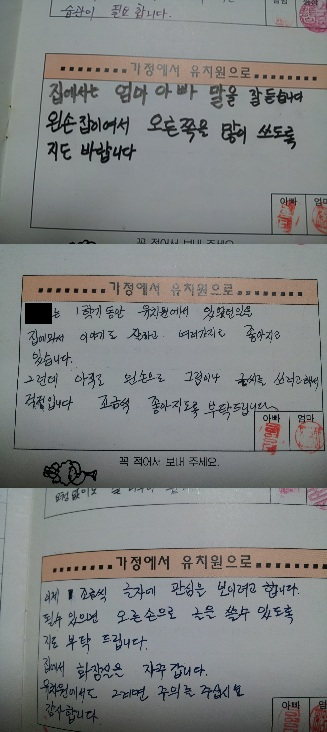 습관이 필요 합니다.
가정에서 유치원으로
집에서는 엄마 아빠 말을 잘 듣습니다
왼손잡이여서 오른쪽을 많이 쓰도록
지도 바랍니다
아빠 엄마
꼭 적어서 보내 주세요.
가정에서 유치원으로
는 1학기 동안 유치원에서 있었던 일을
집에와서 이야기도 잘하고 여러가지로 좋아지고
있습니다.
그런데 아직도 왼손으로 그림이나 글씨를 쓰려고해서
걱정입니다 조금씩 좋아지도록 부탁드립니다
아빠 엄마
꼭 적어서 보내 주세요.
가정에서 유치원으로
이제 조금씩 글자에 관심을 보이려고 합니다.
될수 있으면 오른손으로 글을 쓸수 있도록
지도 부탁 드립니다.
집에서 화장실은 자주 갑니다.
유치원에서도 그러면 주의를 주십시요
감사합니다.
아빠 엄마